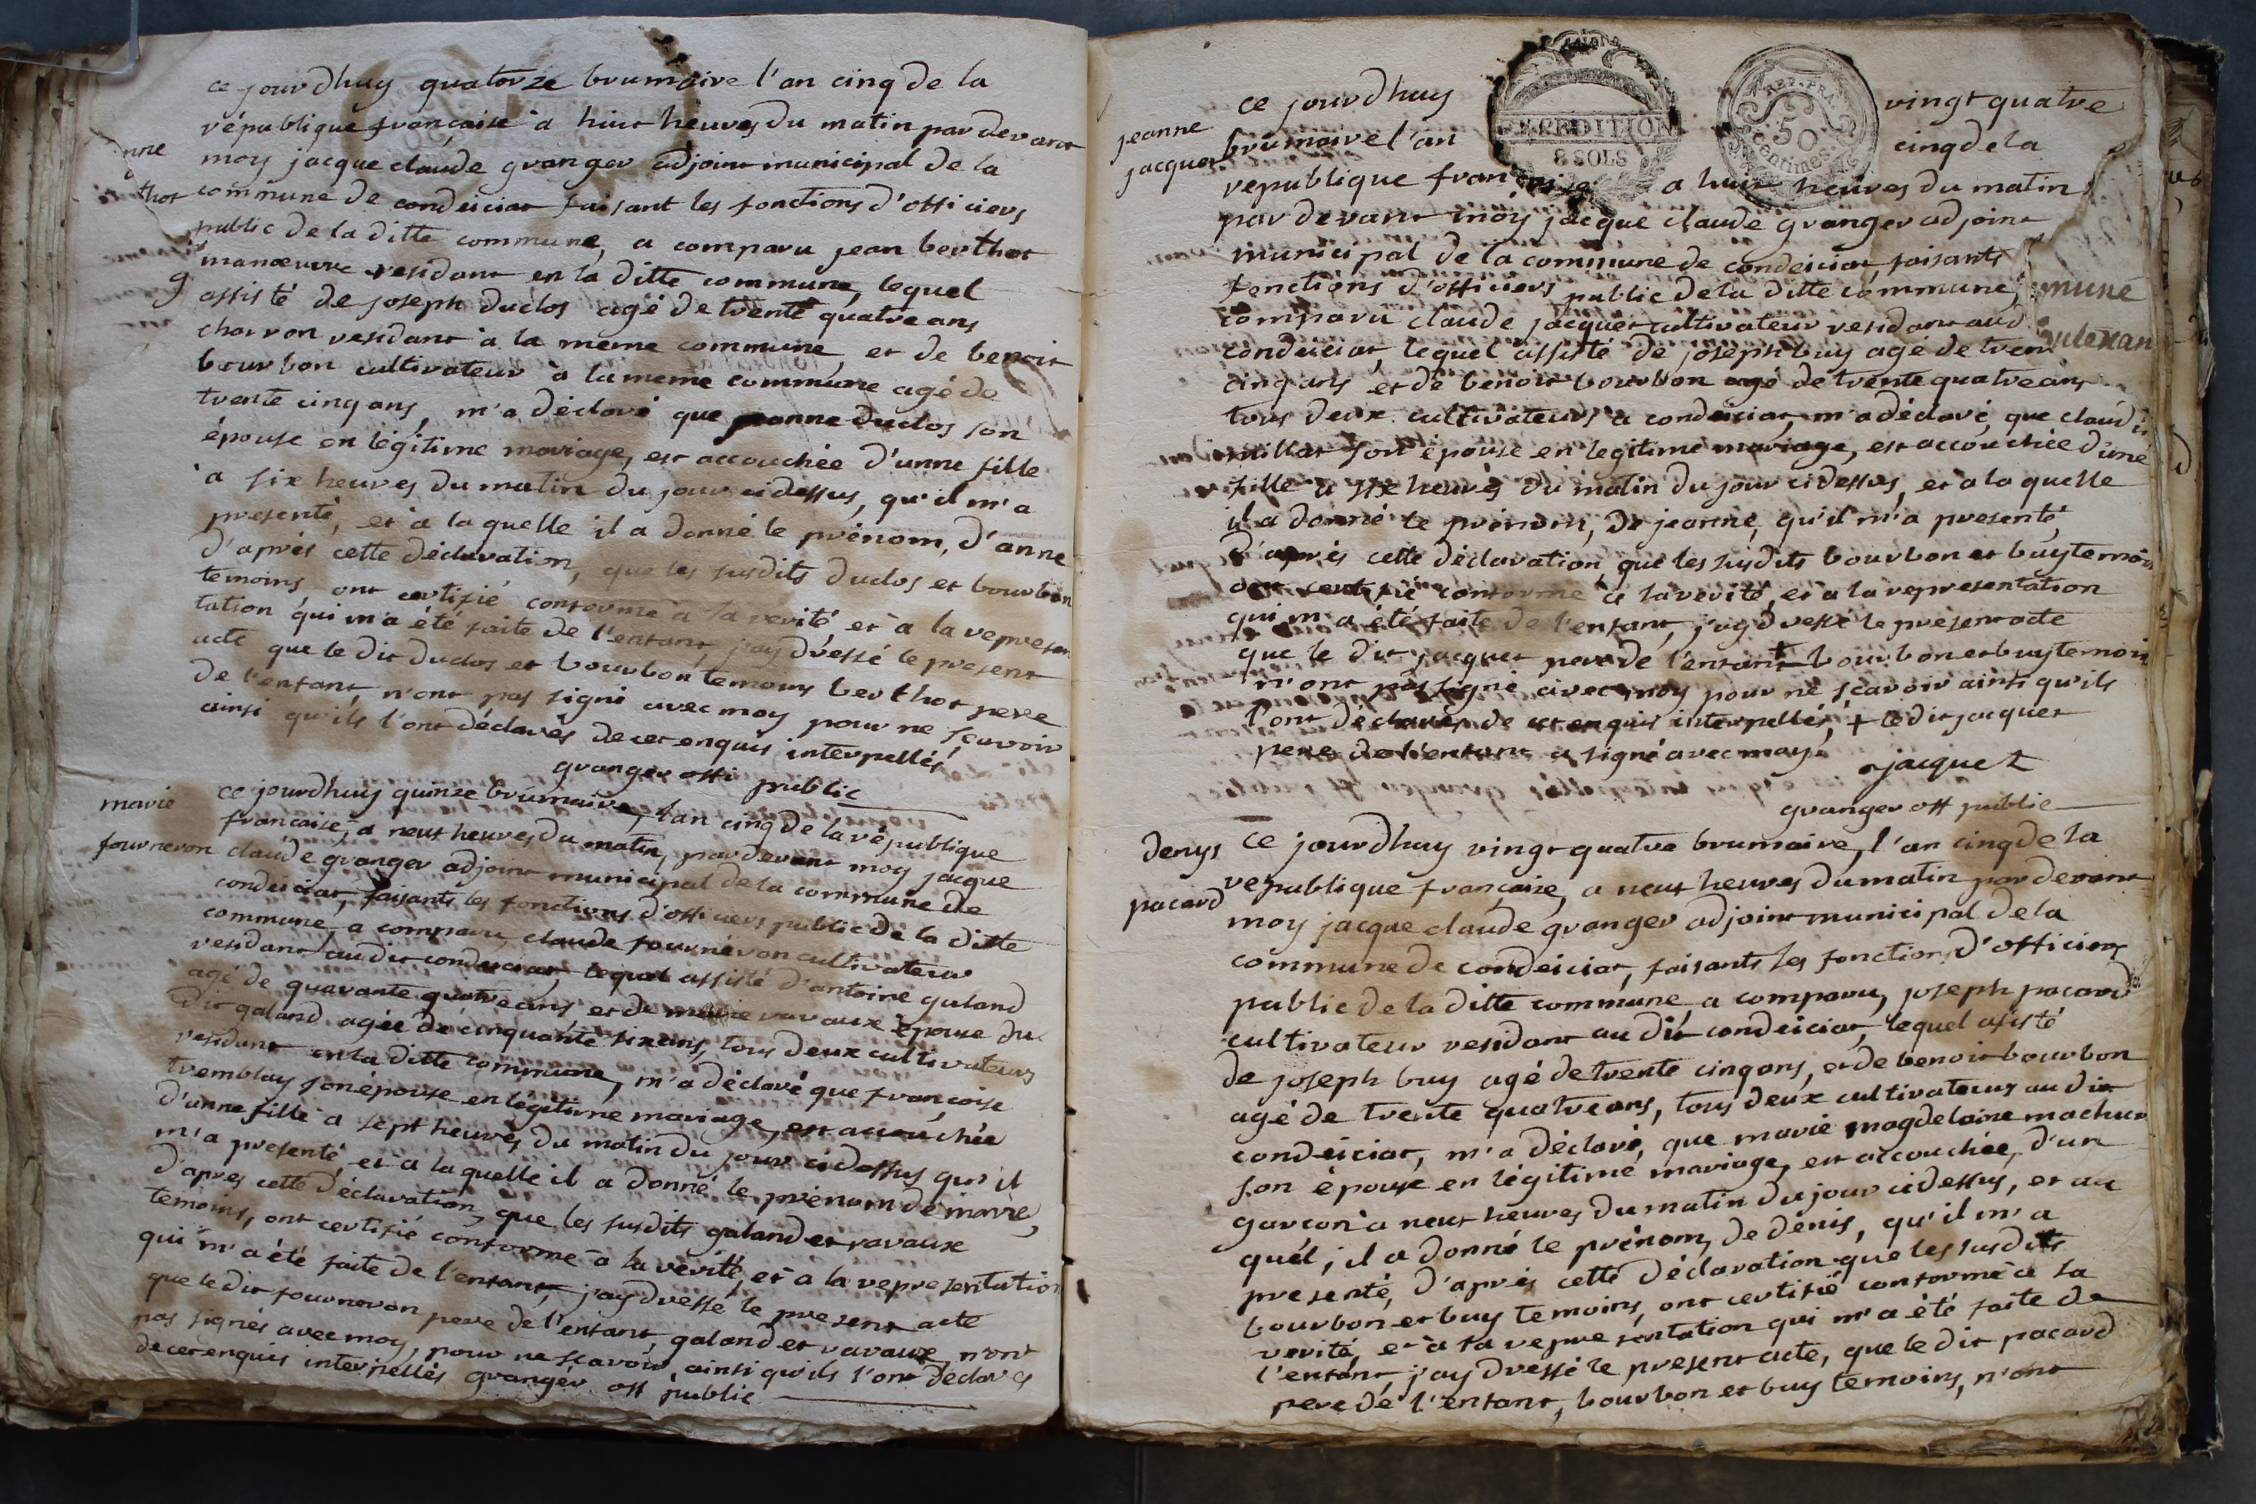 ce jourdhuy quatorze brumaire l'an cinq de la
république française à huit heures du matin par devant
moy jacque claude granger adjoint municipal de la
nne
commune de condeiciat faisant les fonctions d'officiers
thot
public de la ditte commune, a comparu jean berthot
manœuvre residant en la ditte commune, lequel
g
assisté de joseph duclos agé de trente quatre ans
charron residant à la même commune, et de benoit
bourbon cultivateur à la meme commune agé de
trente cinq ans, m'a déclaré que jeanne duclos son
épouse en légitime mariage, est accouchée d'unne fille
à six heures du matin du jour cidessus, qu'il m'a
presenté, et à la quelle il a donné le prénom, d'anne
d'après cette déclaration, que les susdits duclos et bourbon
temoins, ont certifié conforme à la verité, et à la represen
tation qui m'a été faite de l'enfant, j'ay dressé le present
acte que le dit duclos et bourbon temoins berthot pere
de l'enfant, n'ont pas signé avec moy pour ne scavoir
ainsi qu'ils l'ont déclarés de cet enquis interpellés,
granger offi public
marie
fourneron
ce jourdhuy quinze brumaire, l'an cinq de la république
francaise, a neuf heures du matin, par devant moy jacque
claude granger adjoint municipal de la commune de
condeiciat, faisants les fonctions d'officiers public de la ditte
commune, a comparu claude fourneron cultivateur
residant au dit condeiciat, lequel assisté d'antoine galand
agé de quarante quatre ans, et de marie ravaux épouse du
dit galand agée de cinquante six ans, tous deux cultivateurs
residant en la ditte commune, m'a déclaré que françoise
tremblay son épouse en légitime mariage, est accouchée
d'unne fille à sept heures du matin du jour cidessus qu'il
m'a presenté, et à la quelle il a donné le prénom de marie,
d'apres cette déclaration, que les susdits galand et ravaux
temoins, ont certifié conforme à la vérité, et à la representation
qui m'a été faite de l'enfant, j'ay dressé le present acte
que le dit fourneron pere de l'enfant, galand et ravaux, n'ont
pas signés avec moy, pour ne scavoir, ainsi qu'ils l'ont déclarés
de cet enquis interpellés granger off public
EXPEDITION
8 SOLS
REP. FRA.
50
centimes
jeanne
jacquet
ce jourdhuy vingt quatre
brumaire l'an cinq de la
republique française a huit heures du matin
par devant moy jacque claude granger adjoint
municipal de la commune de condeiciat, faisants
fonctions d'officiers public de la ditte commune,
comparu claude jacquet cultivateur residant aud
condeiciat, lequel assisté de joseph buy agé de tren
cinq ans et de benoit bourbon agé de trente quatre ans
tous deux cultivateurs a condeiciat, m'a déclaré, que claudi
millat son épouse en legitime mariage, est accouchée d'une
fille à six heures du matin du jour cidessus, et a la quelle
il a donné le prénom, de jeanne, qu'il m'a presenté,
d'après cette déclaration que les susdits bourbon et buy temoin
ont certifié conforme à la verité, et a la representation
qui m'a été faite de l'enfant, j'ay dressé le présent acte
que le dit jacquet pere de l'enfant + bourbon et buy temoin
n'ont pas signé avec moy pour ne scavoir ainsi qu'ils
l'ont déclarés de cet enquis interpellés, + le dit jacquet
pere de l'enfant a signé avec moy.
jacquet
granger off public
denys
pacard
Ce jourdhuy vingt quatre brumaire, l'an cinq de la
republique française, a neuf heures du matin par devant
moy jacque claude granger adjoint municipal de la
commune de condeiciat, faisants les fonctions d'officiers
public de la ditte commune, a comparu, joseph pacard
cultivateur residant au dit condeiciat, lequel assisté
de joseph buy agé de trente cinq ans, et de benoit bourbon
agé de trente quatre ans, tous deux cultivateurs au dit
condeiciat, m'a déclaré, que marie magdelaine machur
son épouse en légitime mariage, est accouchée, d'un
garcon à neuf heures du matin du jour cidessus, et au
quel, il a donné le prénom, de dénis, qu'il m'a
presenté, d'après cette déclaration que les susdits
bourbon et buy temoins, ont certifié conforme à la
verité, et à la representation qui m'a été faite de
l'enfant, j'ay dressé le present acte, que le dit pacard
pere de l'enfant, bourbon et buy temoins, n'ont